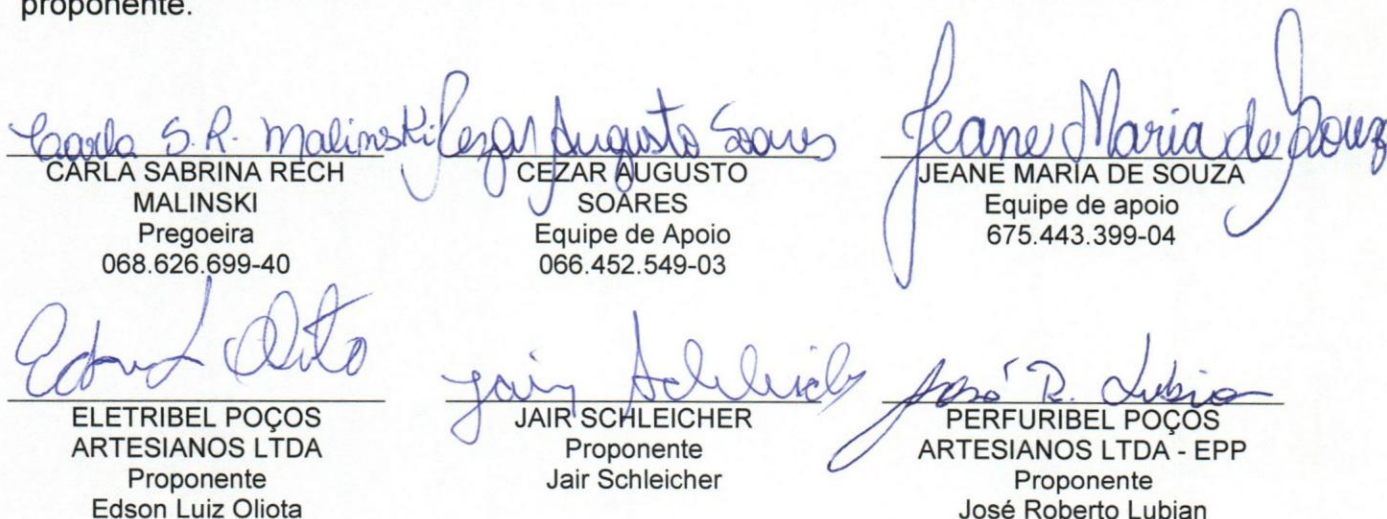 proponente.
Carla S. R. Malinski
CARLA SABRINA RECH
MALINSKI
Pregoeira
068.626.699-40
Cezar Augusto Soares
CEZAR AUGUSTO
SOARES
Equipe de Apoio
066.452.549-03
Jeane Maria de Souza
JEANE MARIA DE SOUZA
Equipe de apoio
675.443.399-04
ELETRIBEL POÇOS
ARTESIANOS LTDA
Proponente
Edson Luiz Oliota
Jair Schleicher
JAIR SCHLEICHER
Proponente
Jair Schleicher
José R. Lubian
PERFURIBEL POÇOS
ARTESIANOS LTDA - EPP
Proponente
José Roberto Lubian